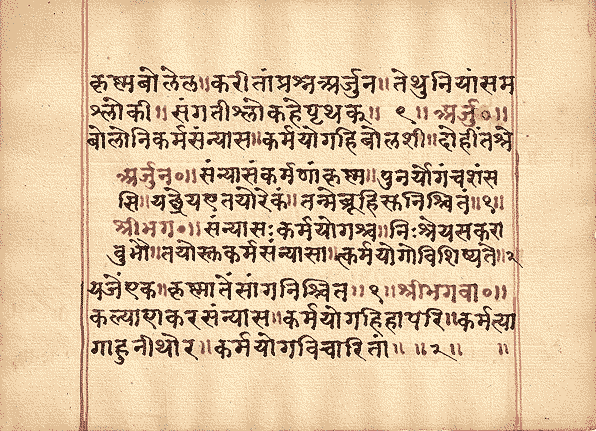 कृष्णबोलेल॥करीतांप्रश्नअर्जुन॥तेथुनियांसम
श्लोकी॥संगतीश्लोकहेपृथक॥१॥अर्जु०॥
बोलोनिकर्मसंन्यास॥कर्मयोगहिबोलशी॥दोहींतश्रे
अर्जुन०॥संन्यासंकर्मणांकृष्ण॥पुनर्योगंचशंस
सि॥यच्छ्रेयएतयोरेकं॥तन्मेब्रूहिसुनिश्चितं॥१॥
श्रीभग०॥संन्यासःकर्मयोगश्च॥निःश्रेयसकरा
वुभौ॥तयोस्तुकर्मसंन्यासा॥त्कर्मयोगोविशिष्यते॥२
यजेंएक॥कृष्णातेंसांगनिश्चित॥१॥श्रीभगवा०॥
कल्याणकरसंन्यास॥कर्मयोगहिहापरि॥कर्मत्या
गाहुनीथोर॥कर्मयोगविचारितां॥॥२॥ ॥